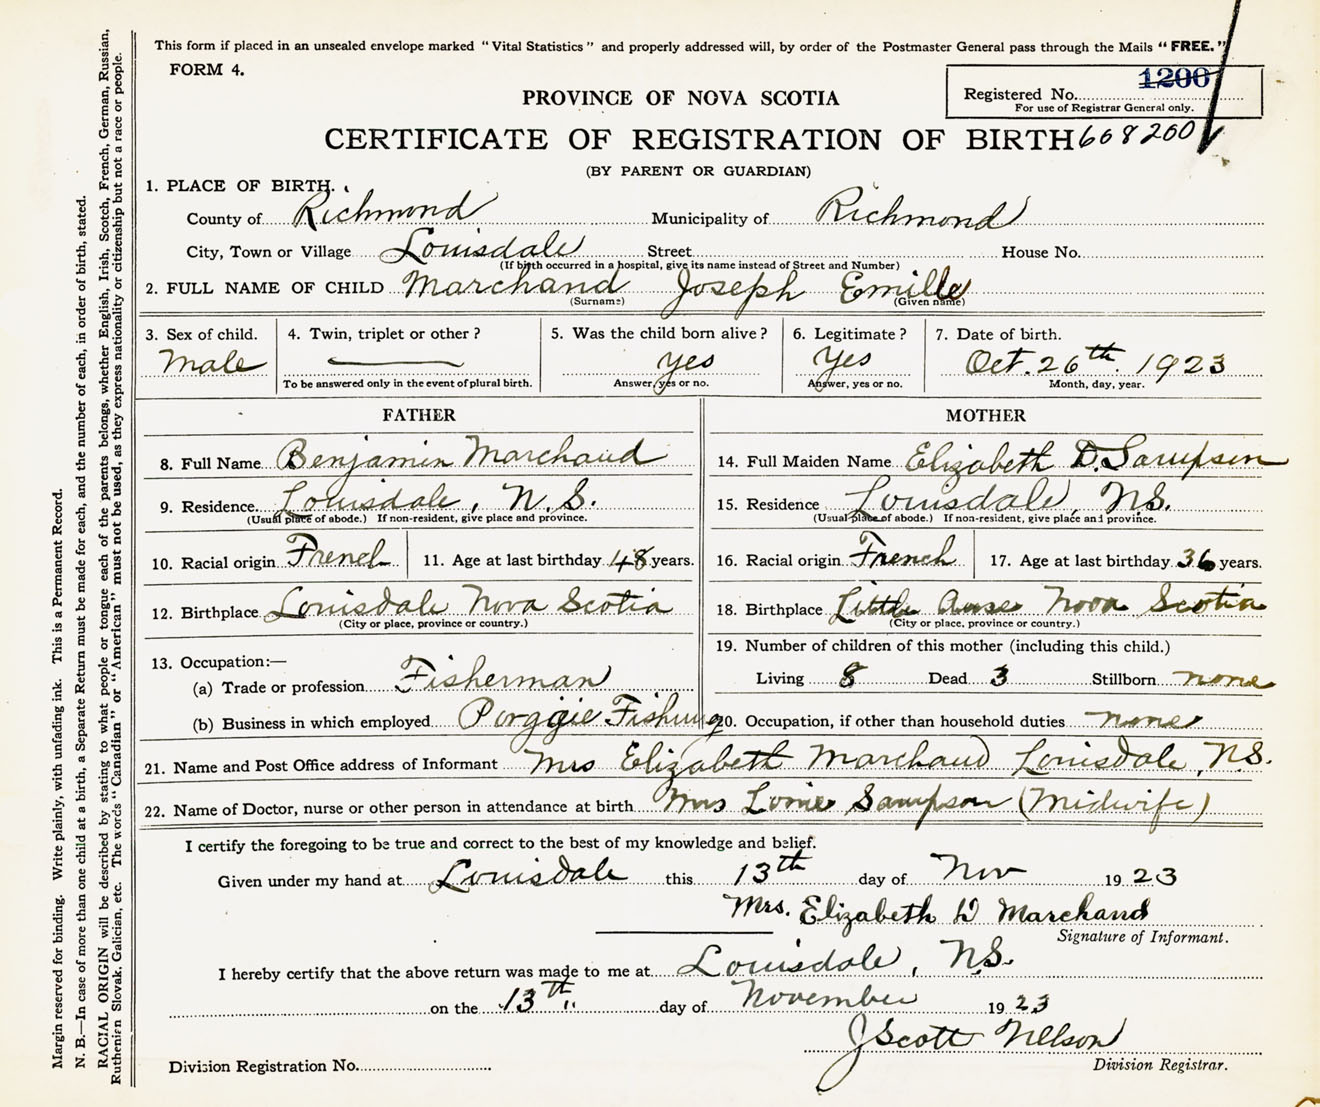 This form if placed in an unsealed envelope marked "Vital Statistics" and properly addressed will, by order of the Postmaster General pass through the Mails "FREE."
FORM 4.
1200
Registered No.
For use of Registrar General only.
PROVINCE OF NOVA SCOTIA
CERTIFICATE OF REGISTRATION OF BIRTH 608200
(BY PARENT OR GUARDIAN)
1. PLACE OF BIRTH.
County of Richmond Municipality of Richmond
City, Town or Village Louisdale Street House No.
(If birth occurred in a hospital, give its name instead of Street and Number)
2. FULL NAME OF CHILD Marchand Joseph Emille
(Surname) (Given name)
3. Sex of child. 4. Twin, triplet or other? 5. Was the child born alive? 6. Legitimate? 7. Date of birth.
Male yes Yes Oct. 26th. 1923
To be answered only in the event of plural birth. Answer, yes or no. Answer, yes or no. Month, day, year.
FATHER MOTHER
8. Full Name Benjamin Marchand 14. Full Maiden Name Elizabeth D. Sampson
9. Residence Louisdale, N.S. 15. Residence Louisdale, N.S.
(Usual place of abode.) If non-resident, give place and province. (Usual place of abode.) If non-resident, give place and province.
10. Racial origin French 11. Age at last birthday 48 years. 16. Racial origin French 17. Age at last birthday 36 years.
12. Birthplace Louisdale Nova Scotia 18. Birthplace Little Anse Nova Scotia
(City or place, province or country.) (City or place, province or country.)
13. Occupation:— 19. Number of children of this mother (including this child.)
(a) Trade or profession Fisherman Living 8 Dead 3 Stillborn none
(b) Business in which employed Porggie Fishing 20. Occupation, if other than household duties none
21. Name and Post Office address of Informant Mrs Elizabeth Marchand Louisdale, N.S.
22. Name of Doctor, nurse or other person in attendance at birth Mrs Sampson (Midwife)
I certify the foregoing to be true and correct to the best of my knowledge and belief.
Given under my hand at Louisdale this 13th day of Nov 1923
Mrs. Elizabeth D Marchand
Signature of Informant.
I hereby certify that the above return was made to me at Louisdale, N.S.
on the 13th. day of November 1923
J Scott Nelson
Division Registration No. Division Registrar.
Margin reserved for binding. Write plainly, with unfading ink. This is a Permanent Record.
N. B.—In case of more than one child at a birth, a Separate Return must be made for each, and the number of each, in order of birth, stated.
RACIAL ORIGIN will be described by stating to what people or tongue each of the parents belongs, whether English, Irish, Scotch, French, German, Russian,
Ruthenian Slovak, Galician, etc. The words "Canadian" or "American" must not be used, as they express nationality or citizenship but not a race or people.